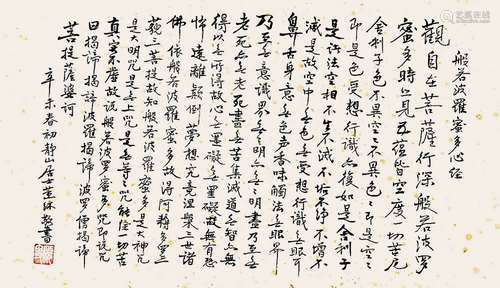 般若波羅蜜多心經
觀自在菩薩行深般若波羅
蜜多時照見五蘊皆空度一切苦厄
舍利子色不異空空不異色色即是空空
即是色受想行識亦復如是舍利子
是諸法空相不生不滅不垢不淨不增不
減是故空中無色無受想行識無眼耳
鼻舌身意無色聲香味觸法無眼界
乃至無意識界無無明亦無無明盡乃至無
老死亦無老死盡無苦集滅道無智亦無
得以無所得故心無罣礙無罣礙故無有恐
怖遠離顛倒夢想究竟涅槃三世諸
佛依般若波羅蜜多故得阿耨多羅三
藐三菩提故知般若波羅蜜多是大神咒
是大明咒是無上咒是無等等咒能除一切苦
真實不虛故說般若波羅蜜多咒即說咒
曰揭諦揭諦波羅揭諦波羅僧揭諦
菩提薩婆訶
辛未春初靜山居士董敬書